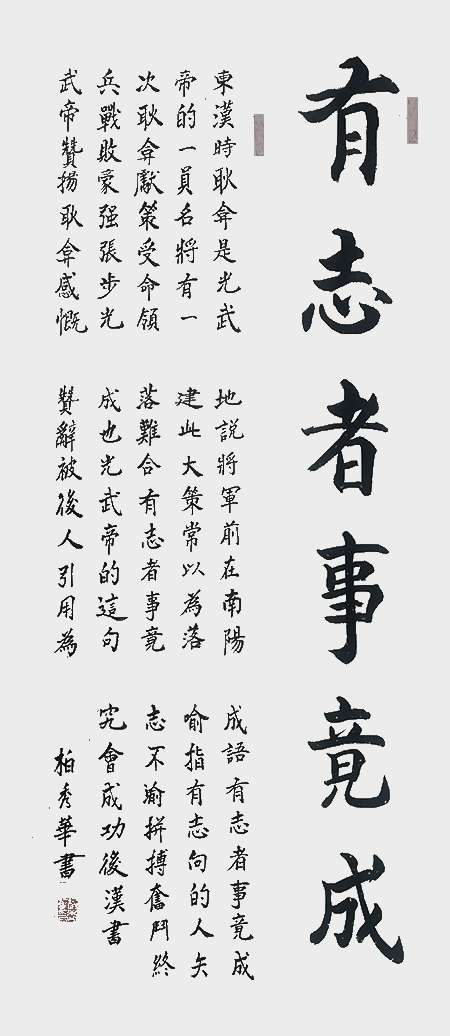 有志者事竟成
東漢時耿弇是光武
帝的一員名將有一
次耿弇獻策受命領
兵戰敗豪强張步光
武帝贊揚耿弇感慨
地説將軍前在南陽
建此大策常以為落
落難合有志者事竟
成也光武帝的這句
贊辭被後人引用為
成語有志者事竟成
喻指有志向的人矢
志不渝拼搏奮鬥終
究會成功後漢書
柏秀華書